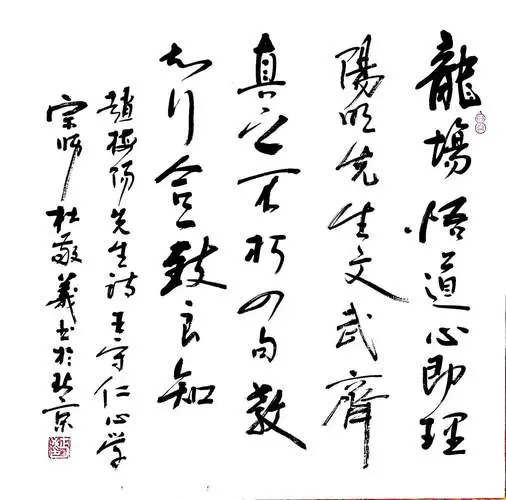 龍場悟道心即理
陽明先生文武齊
真三不朽四句教
知行合一致良知
趙陽先生詩王守仁心学
宗师杜敬義书於北京